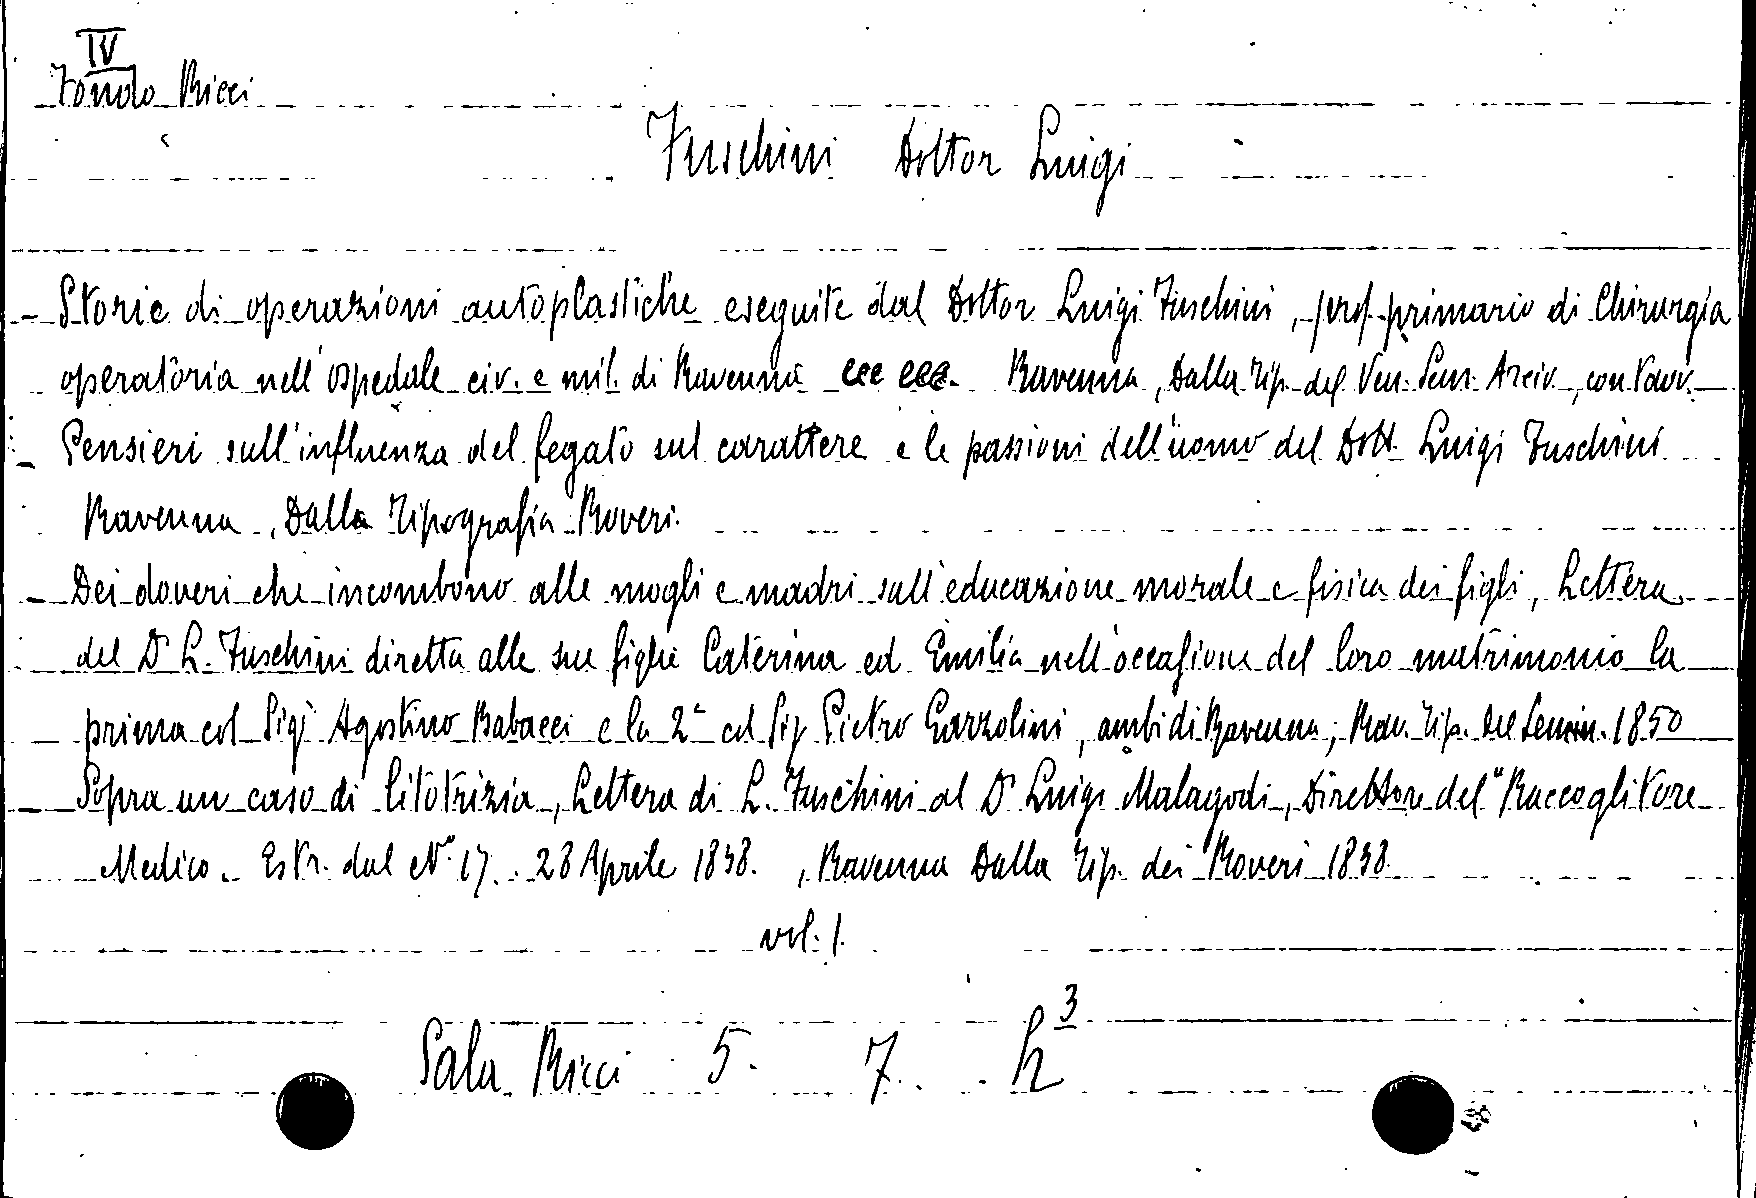 IV
Fondo Ricci
Fuschini Dottor Luigi
- Storie di operazioni autoplastiche eseguite dal Dottor Luigi Fuschini, prof. primario di Chirurgia
operatoria nell'ospedale civ. e mil. di Ravenna ecc ecc. Ravenna, Dalla Tip. del Ven. Sem. Arciv., con tavv.
- Pensieri sull'influenza del fegato sul carattere e le passioni dell'uomo del Dott. Luigi Fuschini
Ravenna, Dalla Tipografia Roveri.
- Dei doveri che incombono alle mogli e madri sull'educazione morale e fisica dei figli, Lettera
del Dr L. Fuschini diretta alle sue figlie Caterina ed Emilia nell'occasione del loro matrimonio la
prima col Sigr Agostino Babacci e la 2a col Sig Pietro Garzolini, ambi di Ravenna, Rav. Tip. del Semin. 1850
- Sopra un caso di litotrizia, Lettera di L. Fuschini al Dr Luigi Malagodi, Direttore del "Raccoglitore
Medico. Estr. dal No 17. 28 Aprile 1838., Ravenna Dalla Tip. dei Roveri 1838
vol. 1.
Sala Ricci 5. 7. h3